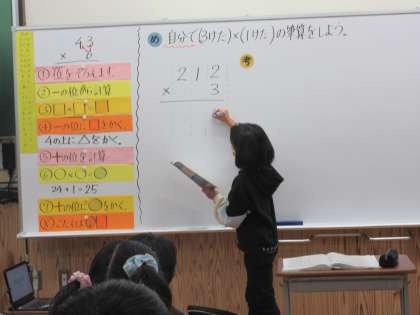 43
× 6
①位をそろえます。
②一の位の計算
③□×□=□
④一の位に□をかく。
4の上に△をかく。
⑤十の位を計算
⑥○×○=○
24+1=25
⑦十の位に○をかく。
め 自分で(3けた)×(1けた)の筆算をしよう。
考
212
× 3